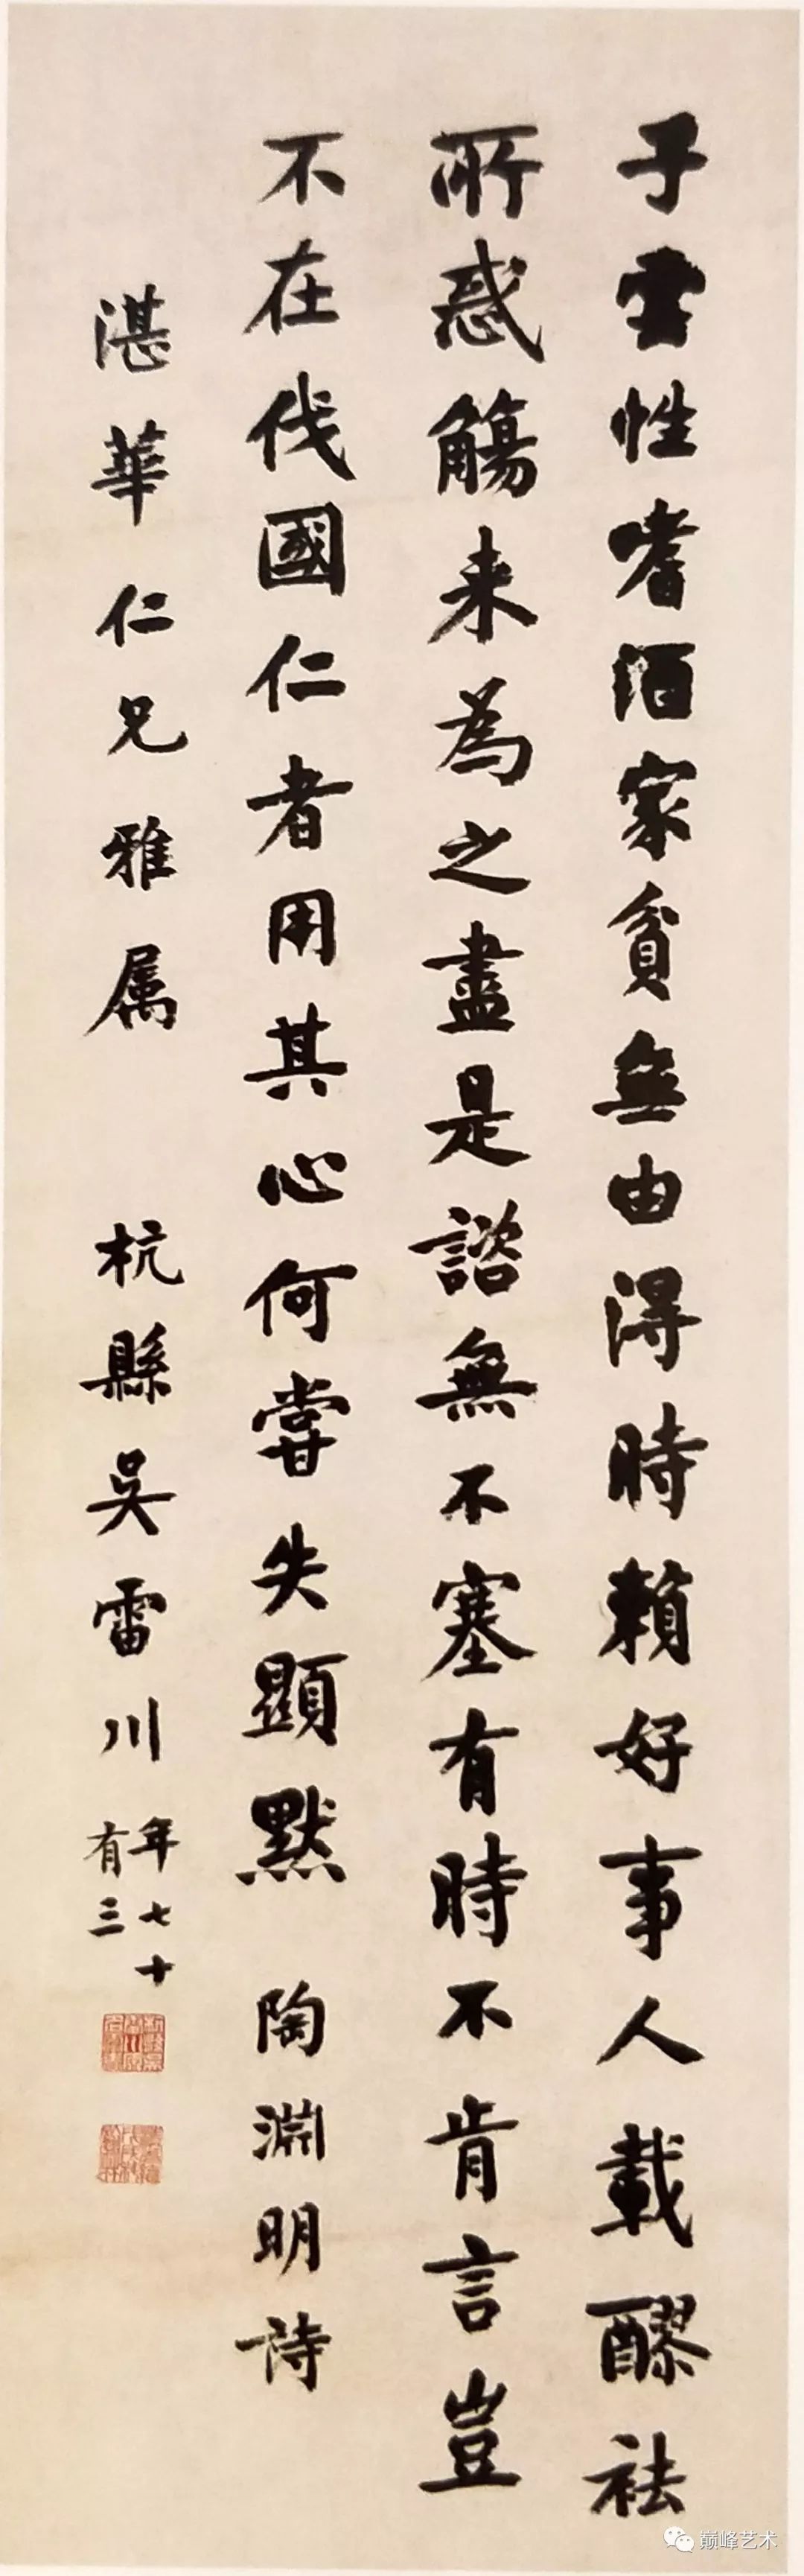 子雲性嗜酒家貧無由得時賴好事人載醪祛
所惑觴来為之盡是諮無不塞有時不肯言豈
不在伐國仁者用其心何嘗失顯默 陶淵明詩
湛華仁兄雅属 杭縣吳雷川 年七十
有三
巅峰艺术